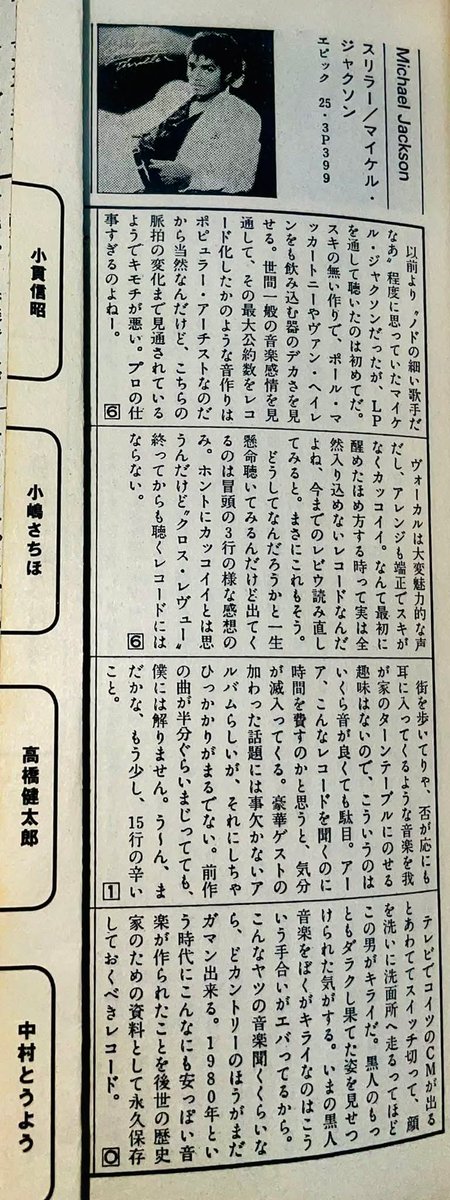 Michael Jackson
スリラー／マイケル・
ジャクソン
エピック 25・3P399
Thriller
以前より〝ノドの細い歌手だ
なあ〟程度に思っていたマイケ
ル・ジャクソンだったが、LP
を通して聴いたのは初めてだ。
スキの無い作りで、ポール・マ
ッカートニーやヴァン・ヘイレ
ンをも飲み込む器のデカさを見
せる。世間一般の音楽感情を見
通して、その最大公約数をレコ
ード化したかのような音作りは
ポピュラー・アーチストなのだ
から当然なんだけど、こちらの
脈拍の変化まで見通されている
ようでキモチが悪い。プロの仕
事すぎるのよねー。 6
小貫信昭
ヴォーカルは大変魅力的な声
だし、アレンジも端正でスキが
なくカッコイイ。なんて最初に
醒めたほめ方する時って実は全
然入り込めないレコードなんだ
よね、今までのレビウ読み直し
てみると。まさにこれもそう。
どうしてなんだろうかと一生
懸命聴いてみるんだけど出てく
るのは冒頭の3行の様な感想の
み。ホントにカッコイイとは思
うんだけど〝クロス・レヴュー〟
終ってからも聴くレコードには
ならない。 6
小嶋さちほ
街を歩いてりや、否が応にも
耳に入ってくるような音楽を我
が家のターンテーブルにのせる
趣味はないので、こういうのは
いくら音が良くても駄目。アー
ア、こんなレコードを聞くのに
時間を費すのかと思うと、気分
が滅入ってくる。豪華ゲストの
加わった話題には事欠かないア
ルバムらしいが、それにしちゃ
ひっかかりがまるでない。前作
の曲が半分ぐらいまじってても、
僕には解りません。う〜ん、ま
だかな、もう少し、15行の辛い
こと。 1
高橋健太郎
テレビでコイツのCMが出る
とあわててスイッチ切って、顔
を洗いに洗面所へ走るってほど
この男がキライだ。黒人のもっ
ともダラクし果てた姿を見せつ
けられた気がする。いまの黒人
音楽をぼくがキライなのはこう
いう手合いがエバってるから。
こんなヤツの音楽聞くくらいな
ら、どカントリーのほうがまだ
ガマン出来る。1980年とい
う時代にこんなにも安っぽい音
楽が作られたことを後世の歴史
家のための資料として永久保存
しておくべきレコード。 0
中村とうよう